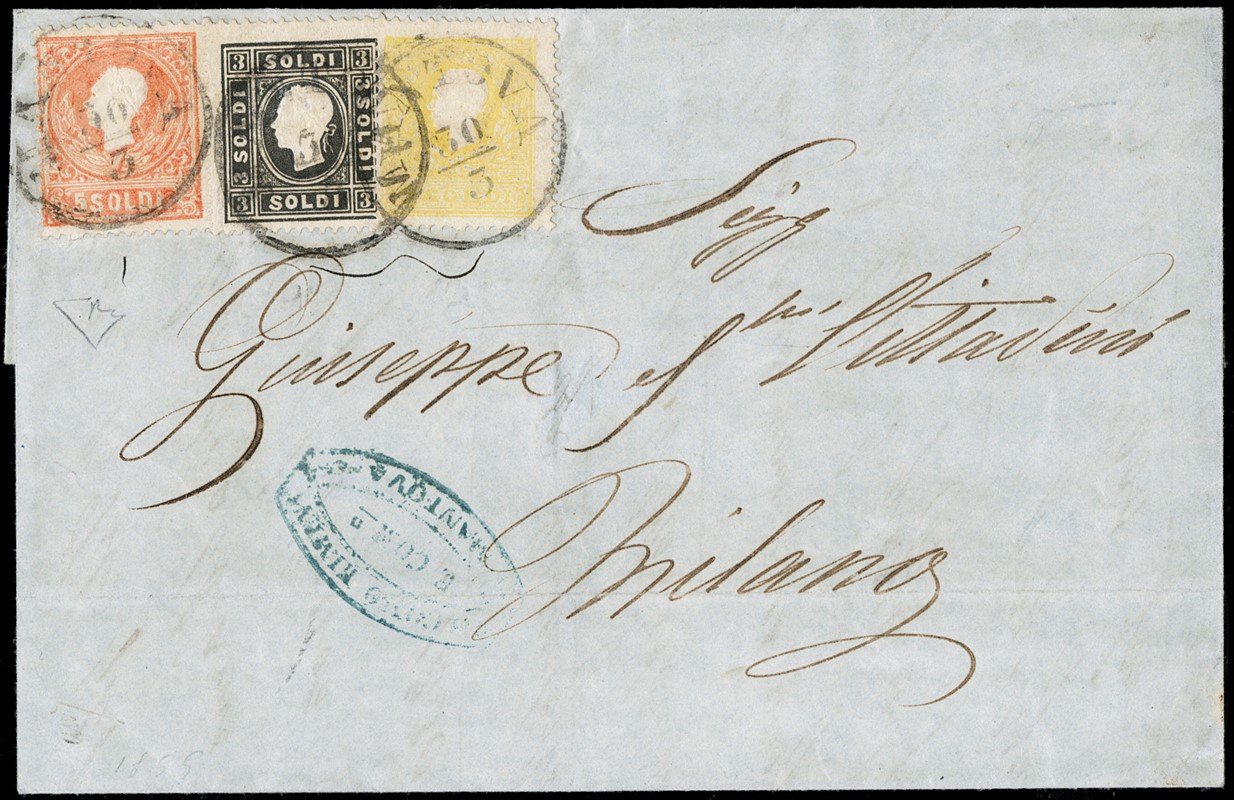 5 SOLDI
3 SOLDI 3
SOLDI
3 SOLDI
3 SOLDI 3
MANTOVA
30/3
MANTOVA
30/3
Sigg
Giuseppe e flli Vittadini
Milano
E COMP.o
MANTOVA
1859